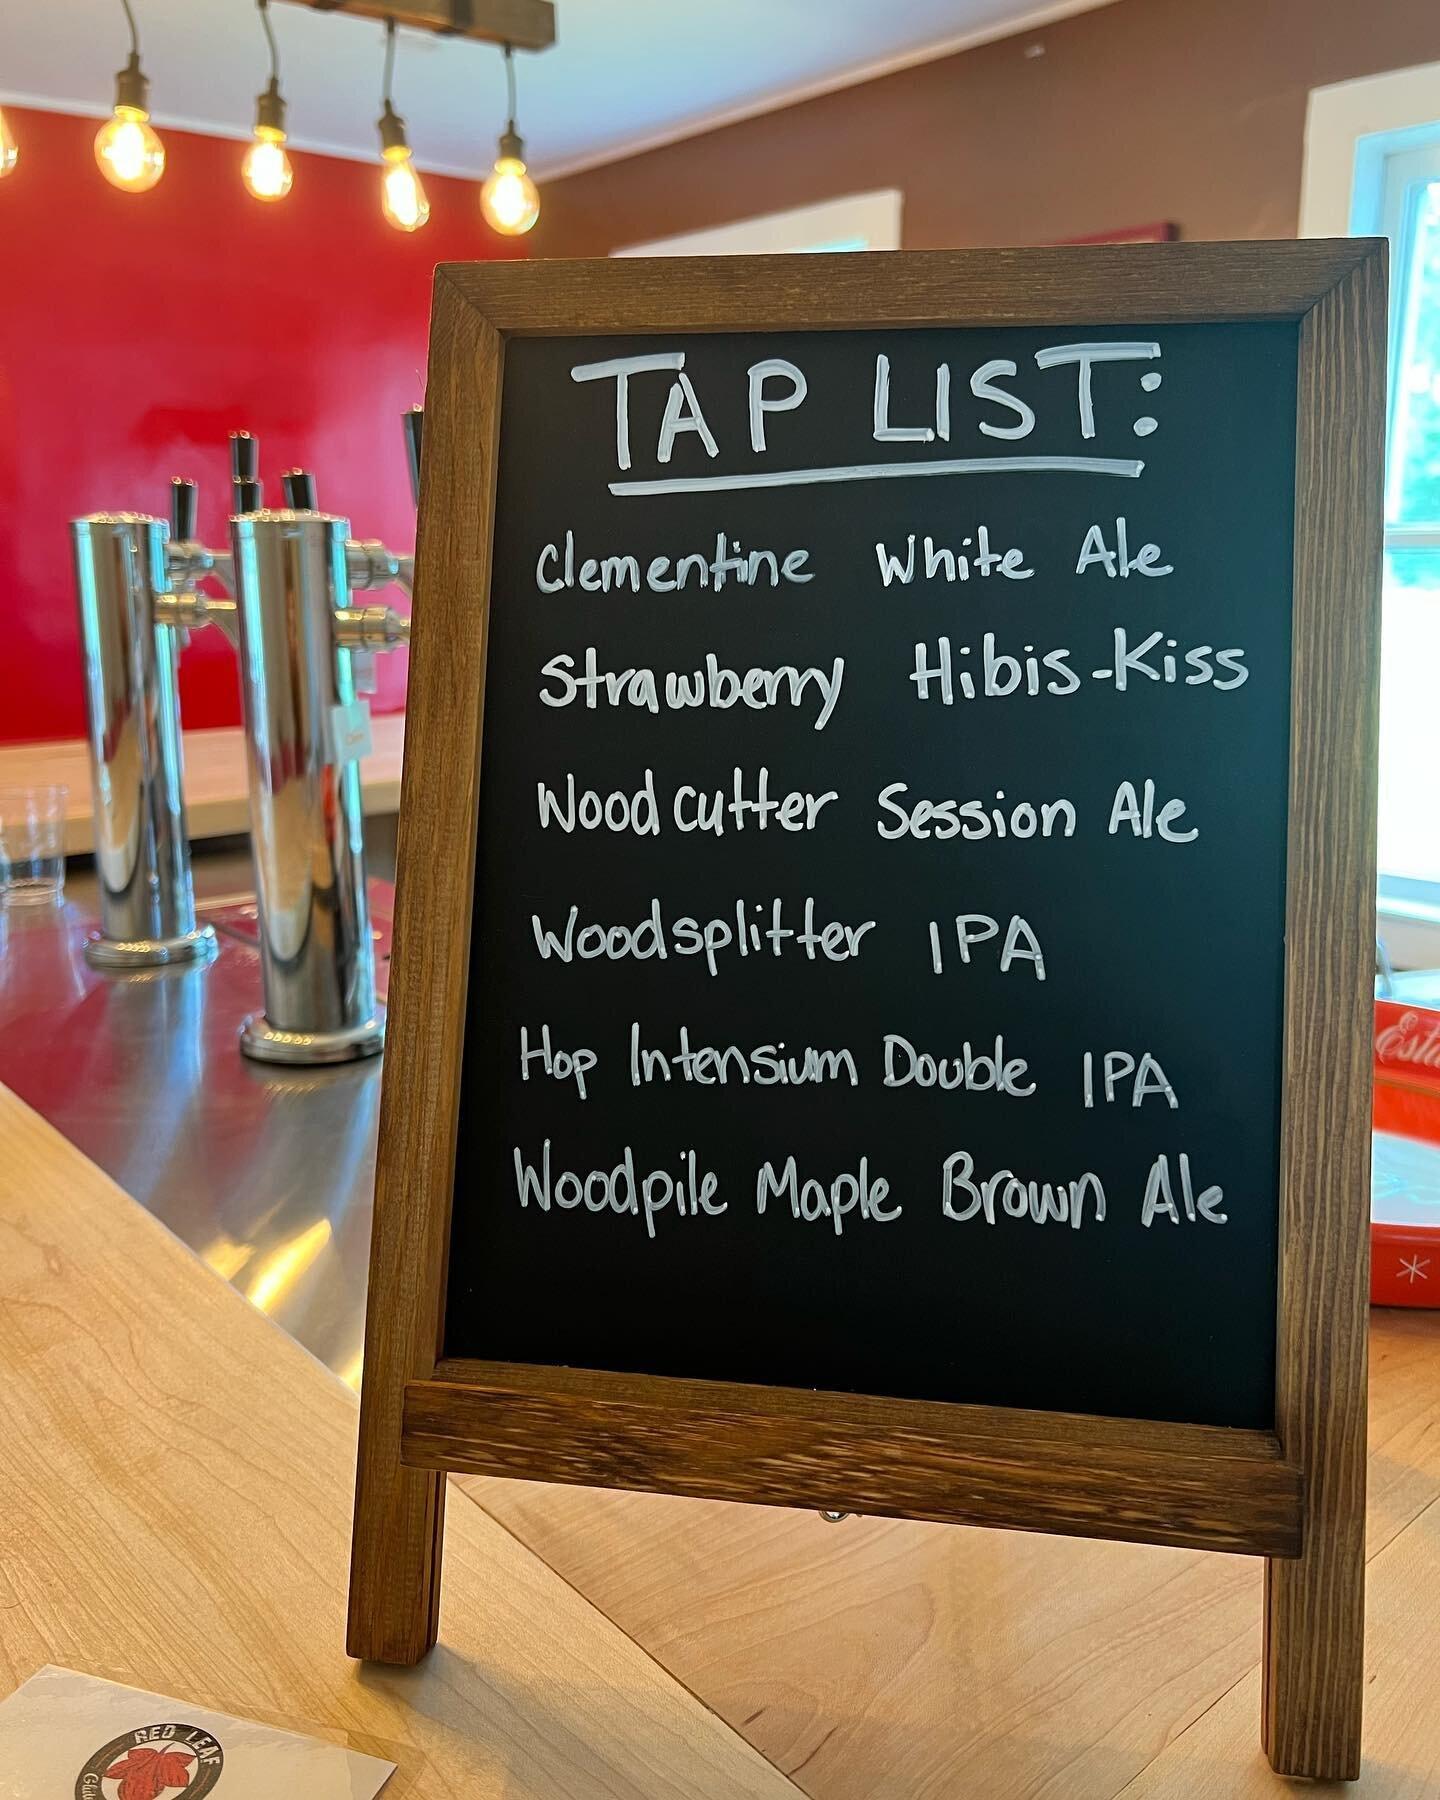 TAP LIST:
Clementine White Ale
Strawberry Hibis-Kiss
Woodcutter Session Ale
Woodsplitter IPA
Hop Intensium Double IPA
Woodpile Maple Brown Ale
RED LEAF